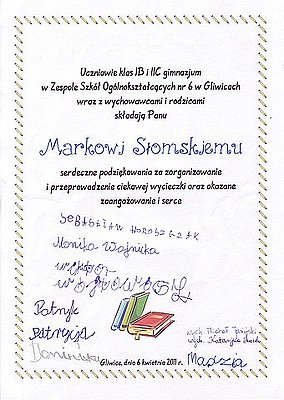 Uczniowie klas IB i IIC gimnazjum
w Zespole Szkół Ogólnokształcących nr 6 w Gliwicach
wraz z wychowawcami i rodzicami
składają Panu
Markowi Słomskiemu
serdeczne podziękowania za zorganizowanie
i przeprowadzenie ciekawej wycieczki oraz okazane
zaangażowanie i serce
SEBASTIAN
Monika Wajnicka
Wiktor
Patryk
Patrycja
Dominika
wych. Michał
wych. Katarzyna
Gliwice, dnia 6 kwietnia 2011 r.
Madzia